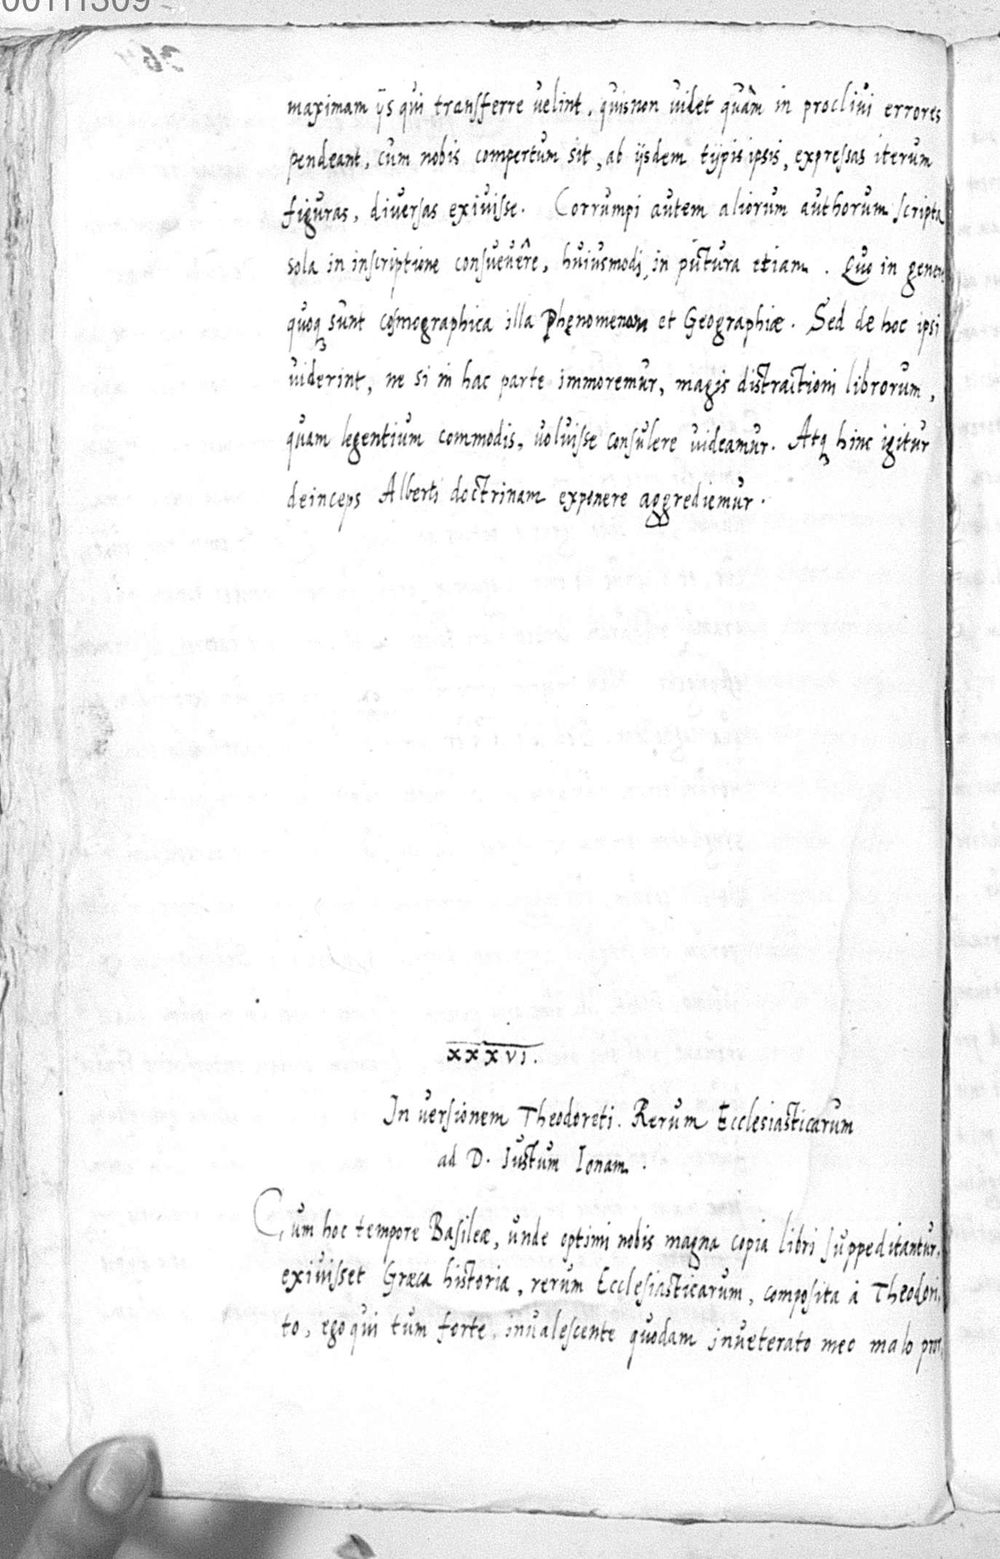 00111309
maximam ijs qui transferre uelint, quis non uidet quâm in procliui errores
pendeant, cum nobis compertum sit, ab ijsdem typis ipsis, expressas iterum
figuras, diuersas exiuisse. Corrumpi autem aliorum authorum scripta
sola in inscriptione consueuêre, huiusmodi, in pictura etiam. Quo in genere
quoq sunt cosmographica illa Phenomenωn et Geographiæ. Sed de hoc ipsi
uiderint, ne si in hac parte immoremur, magis distractioni librorum,
quam legentium commodis, uoluisse consulere uideamur. Atq hinc igitur
deinceps Alberti doctrinam exponere aggrediemur.
XXXVI.
In versionem Theodoreti. Rerum Ecclesiasticarum
ad D. Iustum Ionam.
Cum hoc tempore Basileæ, unde optimi nobis magna copia libri suppeditantur,
exiuisset Græca historia, rerum Ecclesiasticarum, composita à Theodori,
to, ego qui tum forte, inualescente quodam inueterato meo malo